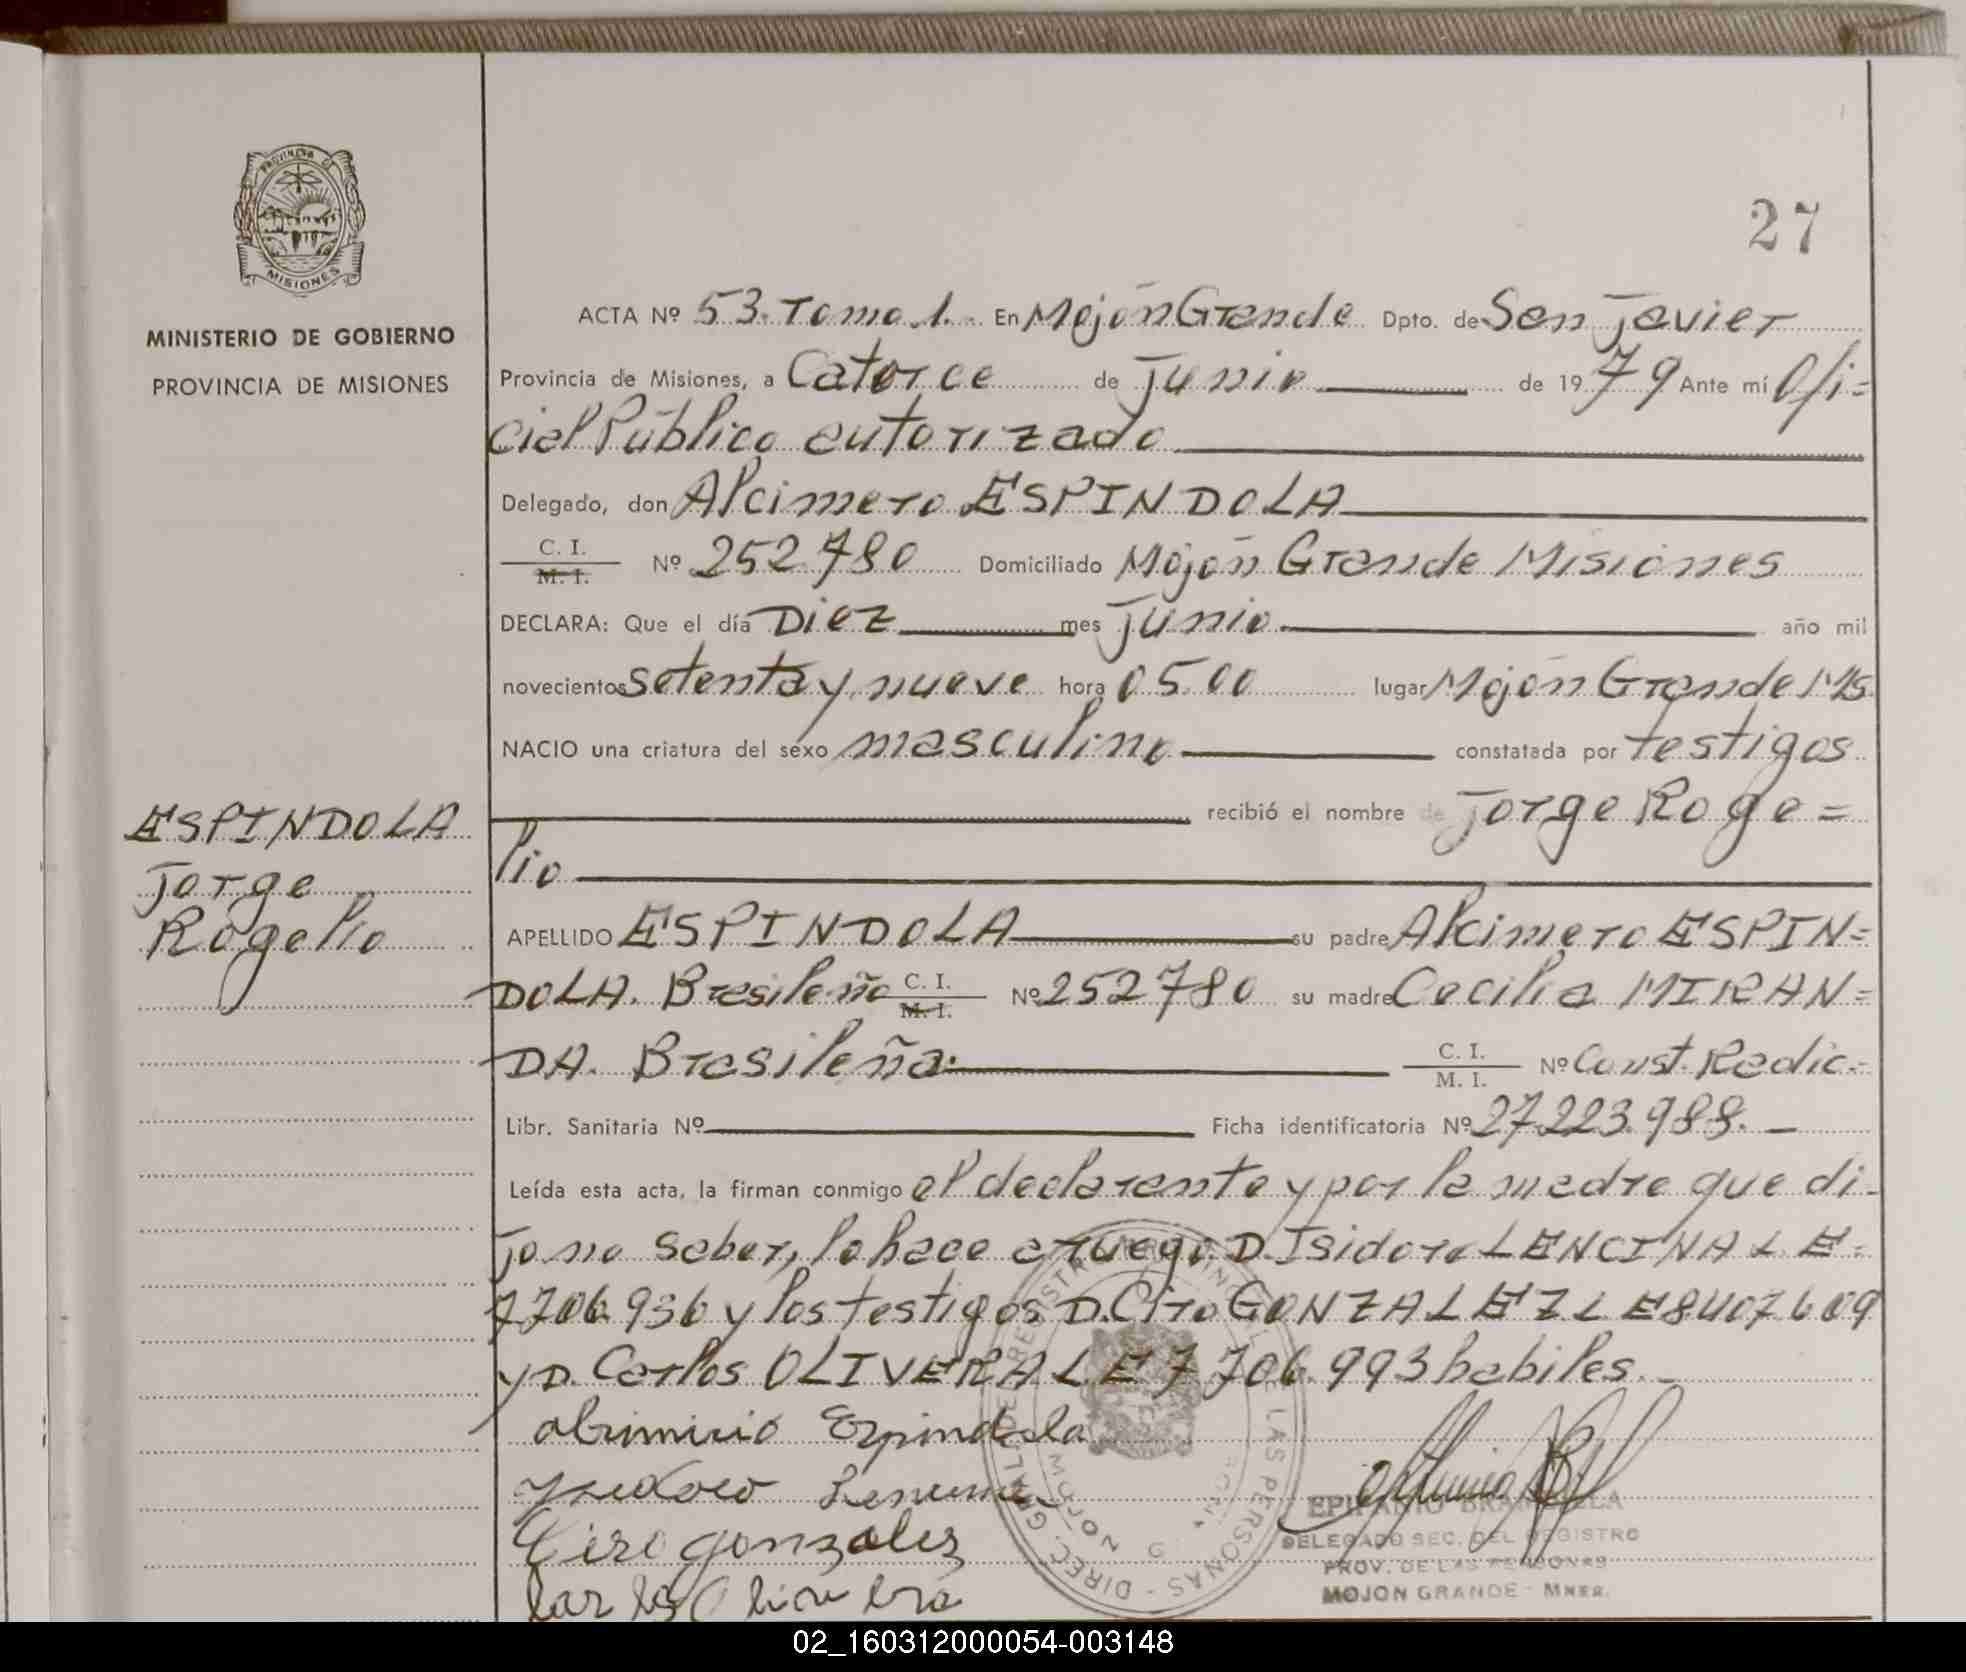 PROVINCIA DE
MISIONES
MINISTERIO DE GOBIERNO
PROVINCIA DE MISIONES
27
ACTA Nº 53. Tomo 1. En Mojón Grande Dpto. de San Javier
Provincia de Misiones, a Catorce de Junio de 1979 Ante mí Ofi=
cial Público autorizado
Delegado, don Alcimero ESPINDOLA
C. I.
M. I. Nº 252780 Domiciliado Mojón Grande Misiones
DECLARA: Que el día Diez mes Junio año mil
novecientos setenta y nueve hora 05.00 lugar Mojón Grande Ms.
NACIO una criatura del sexo masculino constatada por testigos
recibió el nombre de Jorge Roge=
lio
ESPINDOLA
Jorge
Rogelio
APELLIDO ESPINDOLA su padre Alcimero ESPIN=
DOLA. Brasileño C. I. M. I. Nº 252780 su madre Cecilia MIRAN=
DA. Brasileña. C. I. M. I. Nº Const. Radic.=
Libr. Sanitaria Nº Ficha identificatoria Nº 27.223.988.
Leída esta acta, la firman conmigo el declarante y por la madre que di-
jo no saber, lo hace a ruego D. Isidoro LENCINA L E.
7706.936 y los testigos D. Ciro GONZALEZ L E 8407609
y D. Carlos OLIVERA L E 7706.993 habiles.
Espindola
Ciro gonzalez
Carlos Olivera
EPIFANIO BRAMBILLA
DELEGADO SEC. DEL REGISTRO
PROV. DE LAS PERSONAS
MOJON GRANDE - MNES.
02_160312000054-003148